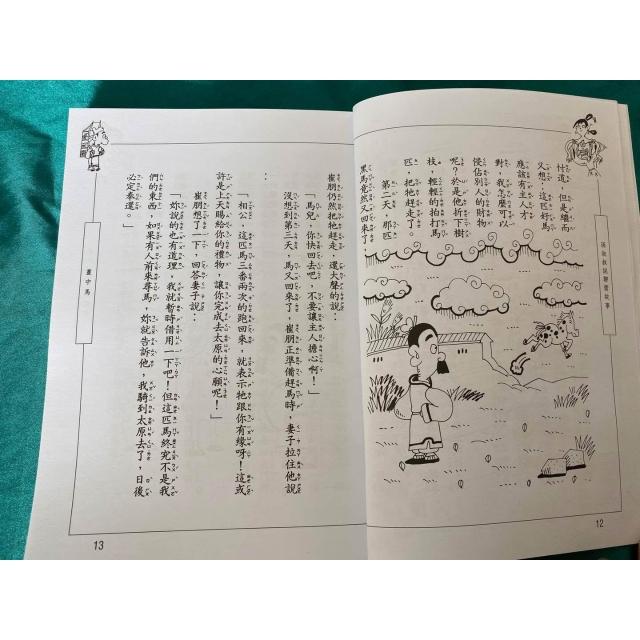 忖道。但是繼而
又想：這匹好馬
應該有主人才
對，我怎麼可以
侵佔別人的財物
呢？於是他折下樹
枝，輕輕的抽打馬
匹，把牠趕走了。
第二天，那匹
黑馬竟然又回來了，
12
崔朋仍然把牠趕走，還大聲的說：
「馬兒，你快回去吧，不要讓主人擔心啊！」
沒想到第三天，馬又回來了，崔朋正準備趕馬時，妻子拉住他說
：
「相公，這匹馬三番兩次的跑回來，就表示牠跟你有緣呀！這或
許是上天賜給你的禮物，讓你完成去太原的心願呢！」
崔朋想了一下，回答妻子說：
「妳說的也有道理，我就暫時借用一下吧！但這匹馬終究不是我
們的東西，如果有人前來尋馬，妳就告訴他，我騎到太原去了，日後
必定奉還。」
畫中馬
13